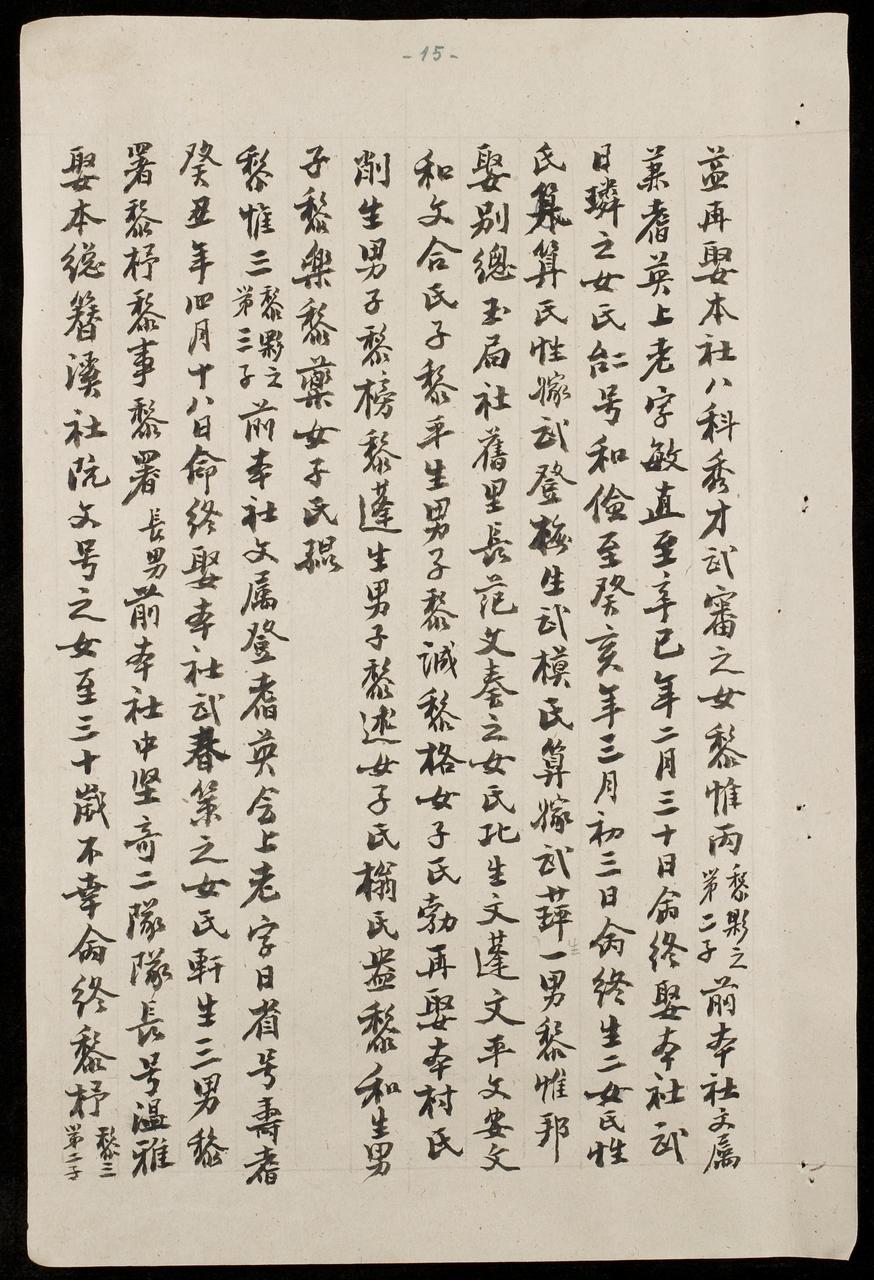 -15-
益再娶本社八科秀才武審之女黎惟丙黎夥之第二子前本社文属
兼耆英上老字敏直至辛巳年二月三十日侖終娶本社武
日璘之女氏号和儉至癸亥年三月初三日侖終生二女氏性
氏算算氏性嫁武登梅生武模氏算嫁武一男黎惟邦
娶別總玉局社舊里長范文奏之女氏批生文蓬文平文安文
和文合氏子黎平生男子黎誠黎格女子氏勃再娶本村氏
削生男子黎榜黎蓬生男子黎述女子氏榒氏盎黎和生男
子黎樂黎藥女子氏
黎惟三黎夥之第三子前本社文属登耆英会上老字日省号壽耆
癸丑年四月十八日命終娶本社武春策之女氏軒生三男黎
署黎杼黎事黎署長男前本社中坚奇二隊隊長号温雅
娶本總簪溪社阮文号之女至三十歲不幸侖終黎杼黎三第二子